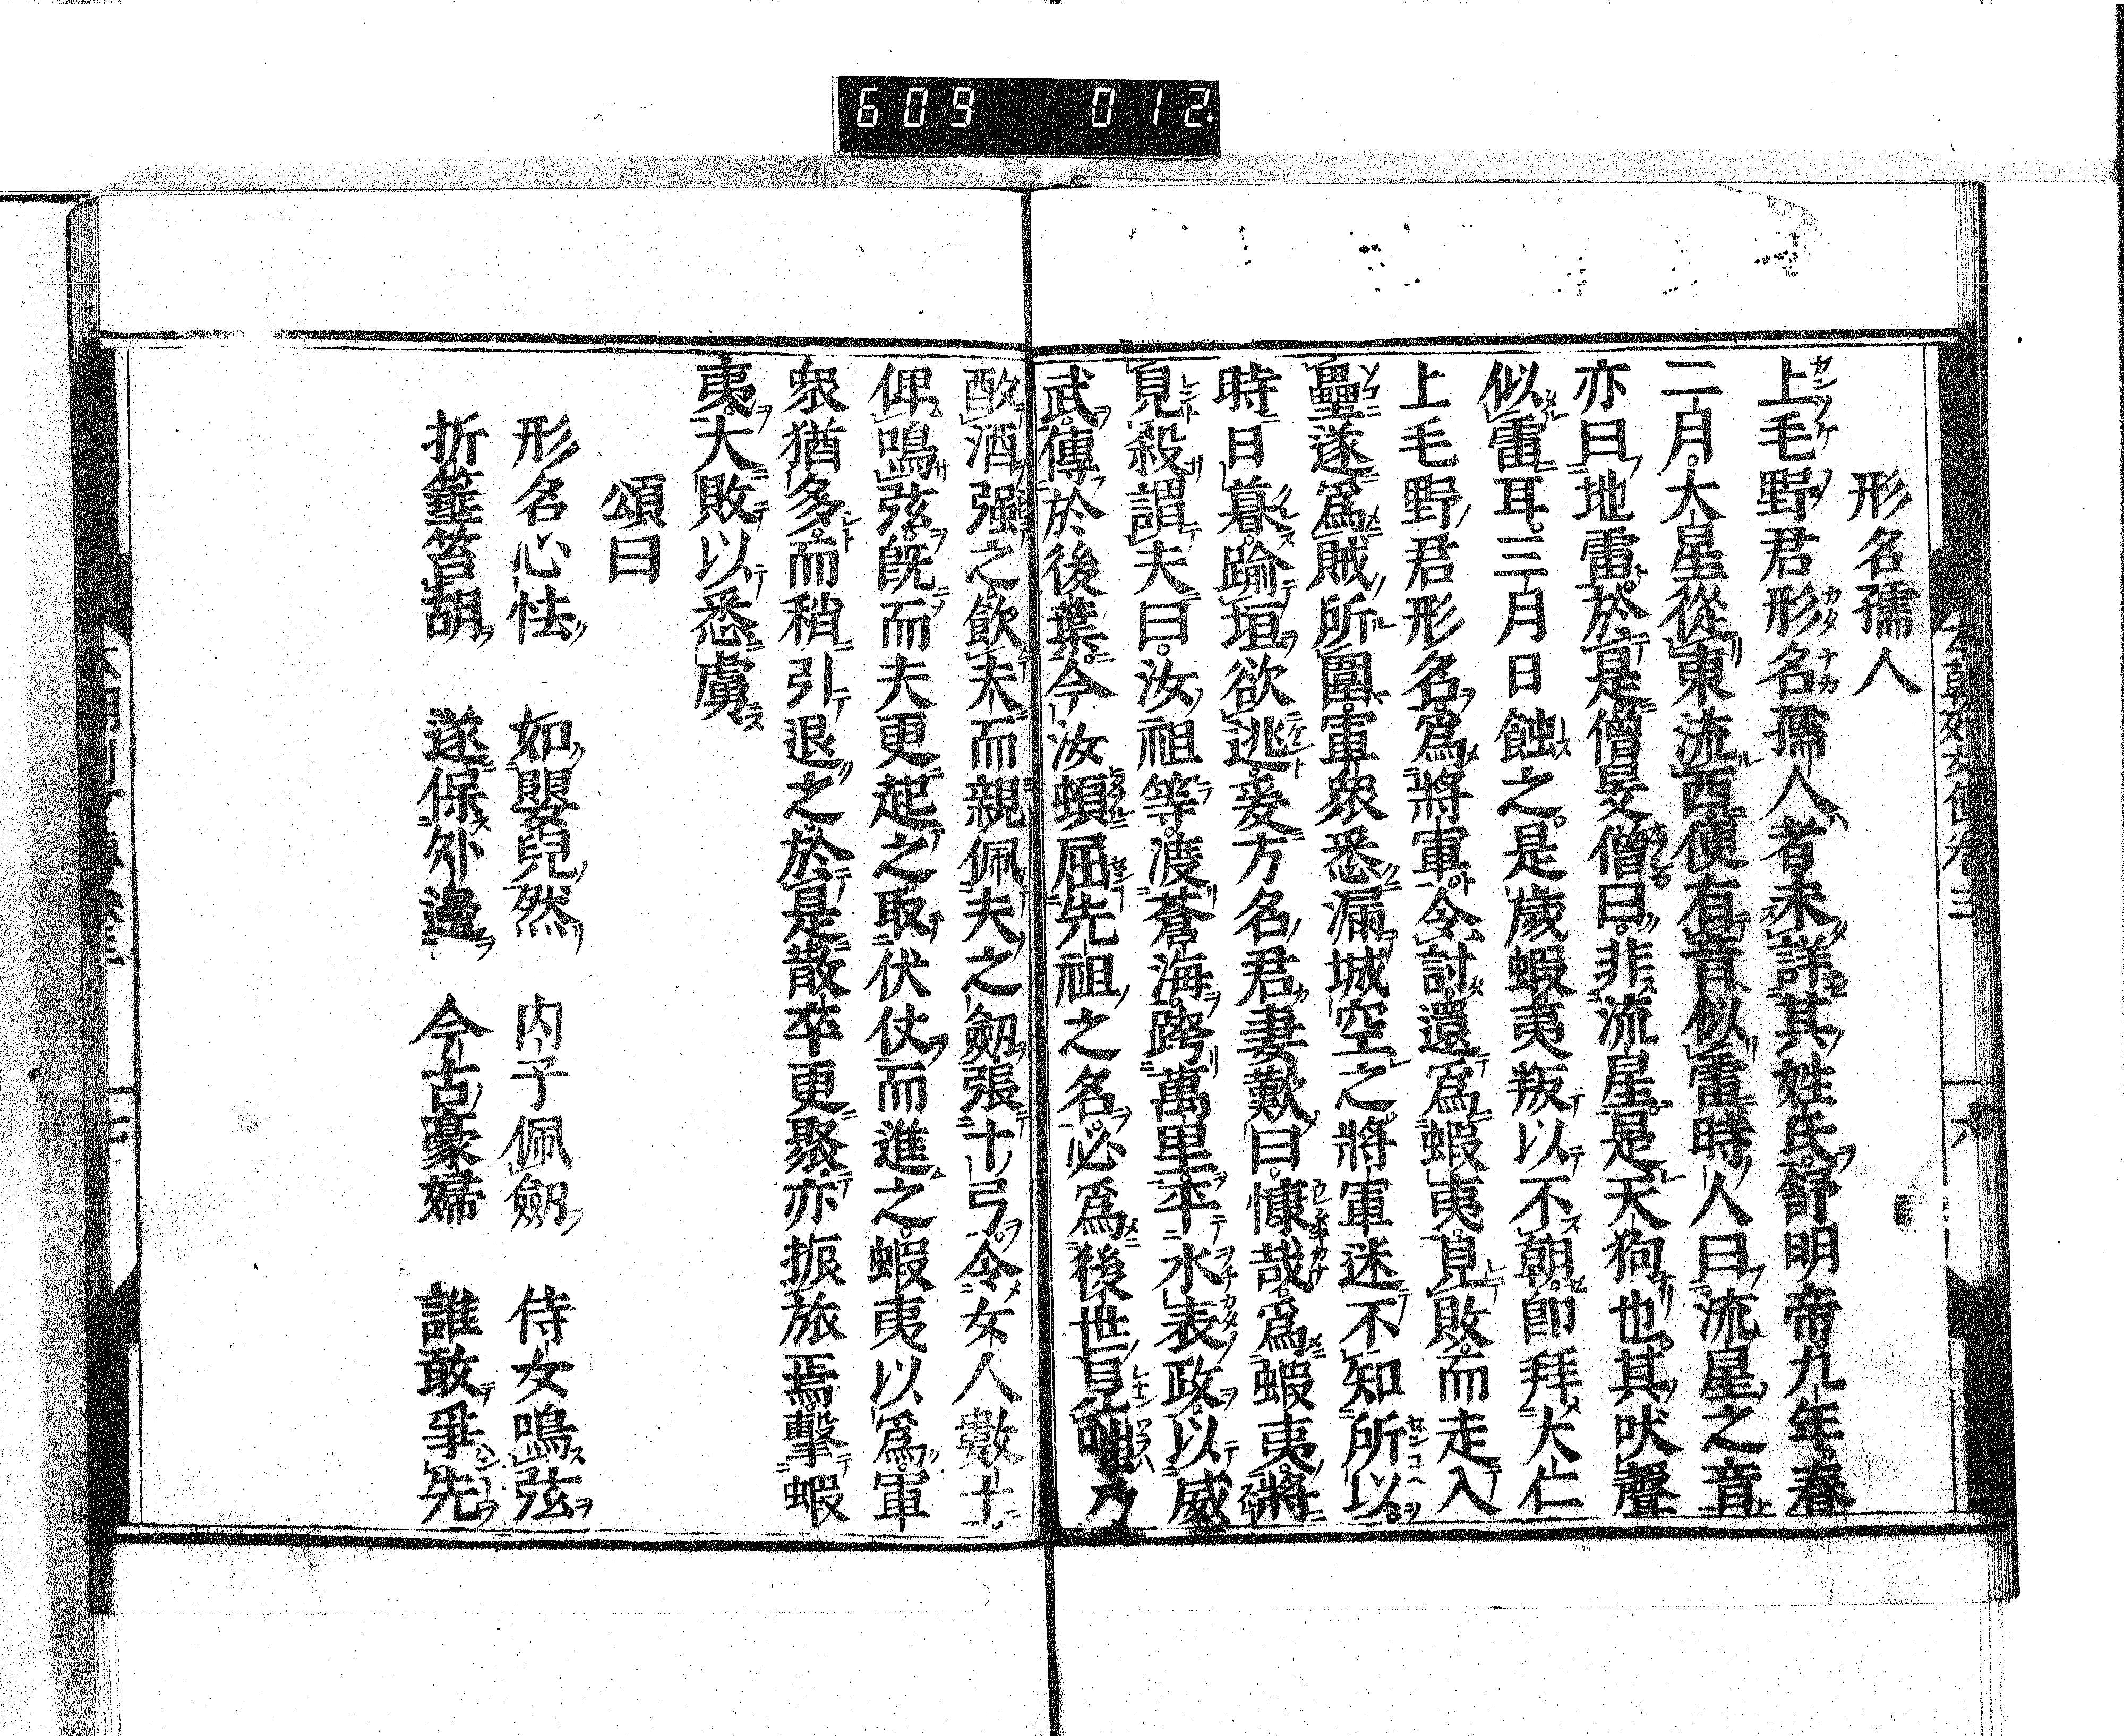 609 012
形名孺人
上毛野君形名孺人者未詳其姓氏舒明帝九年春
二月大星從東流西便有音似雷時人曰流星之音
亦曰地雷於是僧旻僧曰非流星是天狗也其吠聲
似雷耳三月日蝕之是歲蝦夷叛以不朝即拜大仁
上毛野君形名爲將軍令討還爲蝦夷見敗而走入
壘遂爲賊所圍軍衆悉漏城空之將軍迷不知所以
時日暮踰垣欲逃爰方名君妻歎曰慷哉爲蝦夷將
見殺謂夫曰汝祖等渡蒼海跨萬里平水表政以威
武傳於後葉今汝頓屈先祖之名必爲後世見嗤乃
酌酒强之飲夫而親佩夫之劔張十弓令女人數十
俾鳴弦既而夫更起之取伏仗而進之蝦夷以爲軍
衆猶多而稍引退之於是散卒更聚亦振旅焉擊蝦
夷大敗以悉虜
頌曰
形名心怯 如嬰兒然 内子佩劔 侍女鳴弦
折箠笞胡 遂保外邊 今古豪婦 誰敢爭先
本朝列女傳卷三 六